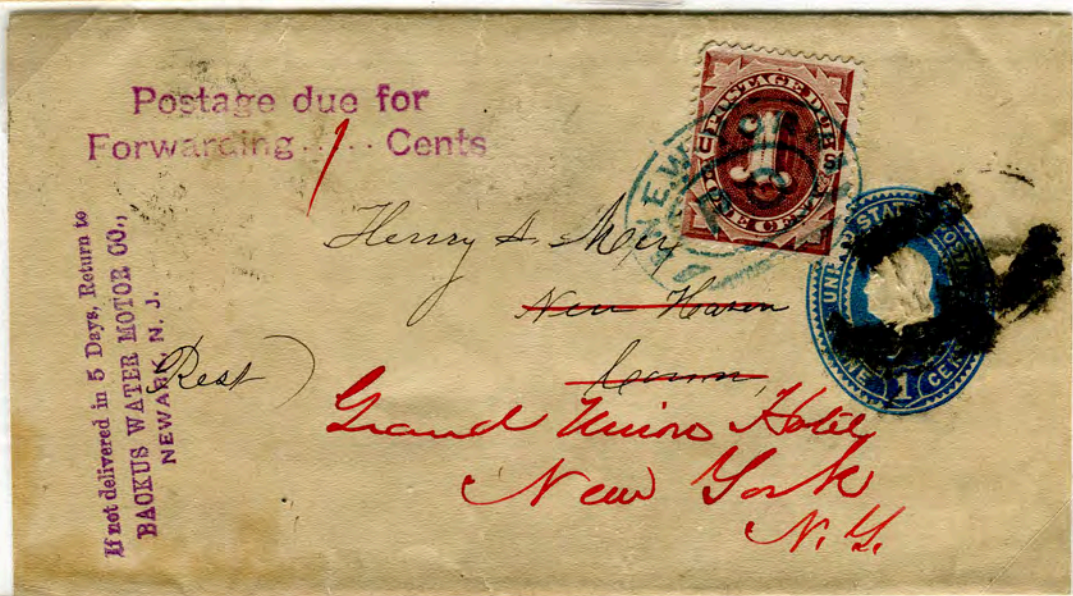 Postage due for
Forwarding 1 Cents
If not delivered in 5 Days, Return to
BACKUS WATER MOTOR CO.,
NEWARK, N. J.
POSTAGE DUE
U S
1
ONE CENT
UNITED STATES POSTAGE
ONE 1 CENT
Henry A.
New Haven
Conn,
(Rest)
Grand Union Hotel
New York
N.Y.